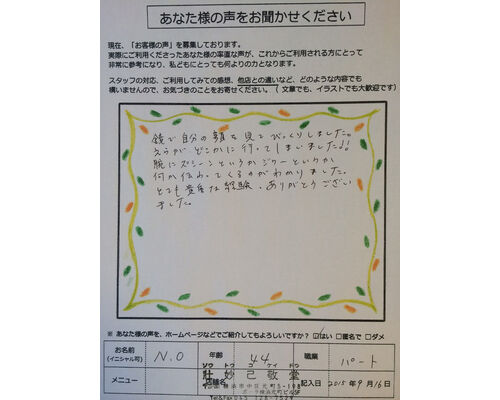 あなた様の声をお聞かせください
現在、「お客様の声」を募集しております。
実際にご利用くださったあなた様の率直な声が、これからご利用される方にとって
非常に参考になり、私どもにとっても何よりの力となります。
スタッフの対応、ご利用してみての感想、他店との違いなど、どのような内容でも
構いませんので、お気づきのことをお寄せください。(文章でも、イラストでも大歓迎です)
鏡で自分の顔を見てびっくりしました。
えらがどこかに行ってしまいました!!
腕にズシーンというかジワーというか
何か伝わってくるのがわかりました。
とても貴重な経験、ありがとうござい
ました。
※ あなた様の声を、ホームページなどでご紹介してもよろしいですか? ☑はい □匿名で □ダメ
お名前 (イニシャル可) N.O 年齢 44 職業 パート
ソウ トウ コ ケイ ドウ
メニュー 店舗名 壮妙己敬堂 記入日 2015年9月16日
横浜市中区元町5-198